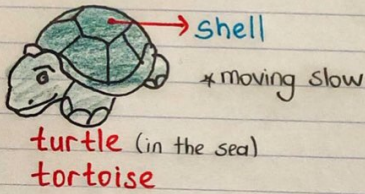 shell
*moving slow
turtle (in the sea)
tortoise